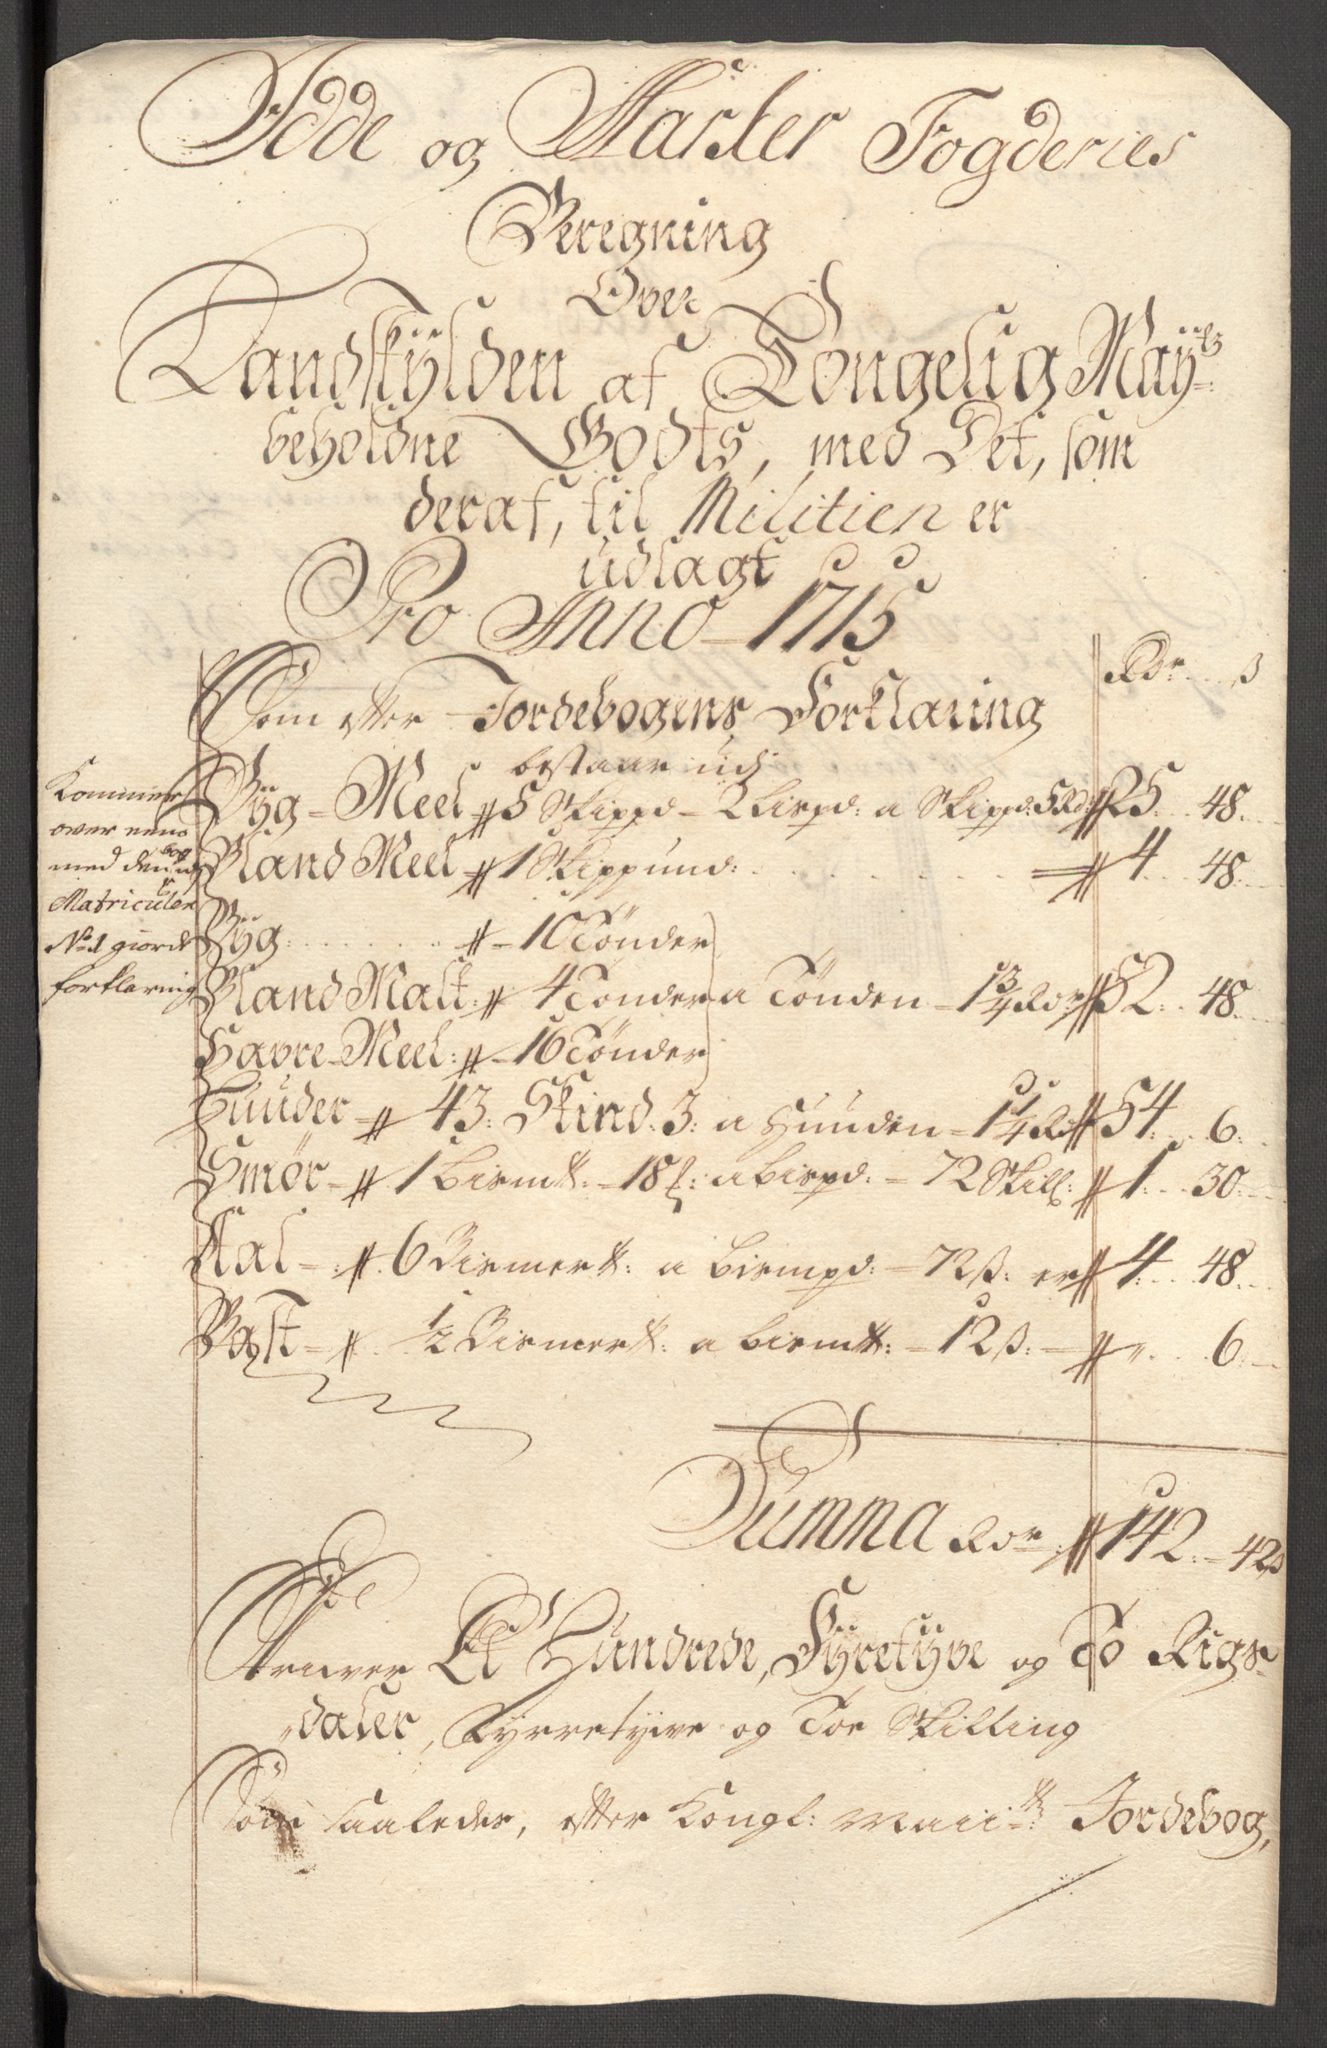 Idde og Marker Fogderies
Beregning
Over
Landskÿlden af Kongelig Maÿ:ts
beholdne Godts, med Det, som
deraf, til Militien er
udlagt
Pro Anno 1715
Rdr ß
Som efter Jordebogens Forklaring
bestaar udj
Bÿg-Meel 5 Skippd - 2 Bispd: a Skippd: 5 Rd: 25 .. 48
Bland Meel 1 Skippund: 4 .. 48
Bÿg: 10 Tönder
Bland Malt: 4 Tönder a Tönden - 1 3/4 Rdr 52: .. 48
Havre-Meel: 16 Tönder
Huuder 43: Skind 3: a Huuden - 1 1/4 Rd 54: .. 6:
Smör 1 Bismk: 18 a Bispd: - 72 Skill: 1: .. 30
Aal 6 Bismerk: a Bismpd: - 72 ß: er 4: .. 48
1/2 Bismerk: a Bismk: - 12 ß: " .. 6:
Kommer
over eens
med den
ved
Matriculen
No 1 giorde
forklaring
Summa Rdr 142: - 42 ß
Skriver Et Hundrede, Fÿretÿve og To Rigs
daler, Fyrretyve og Toe Skilling
Som saaledes, efter Kongl: Maiits: Jordebog,